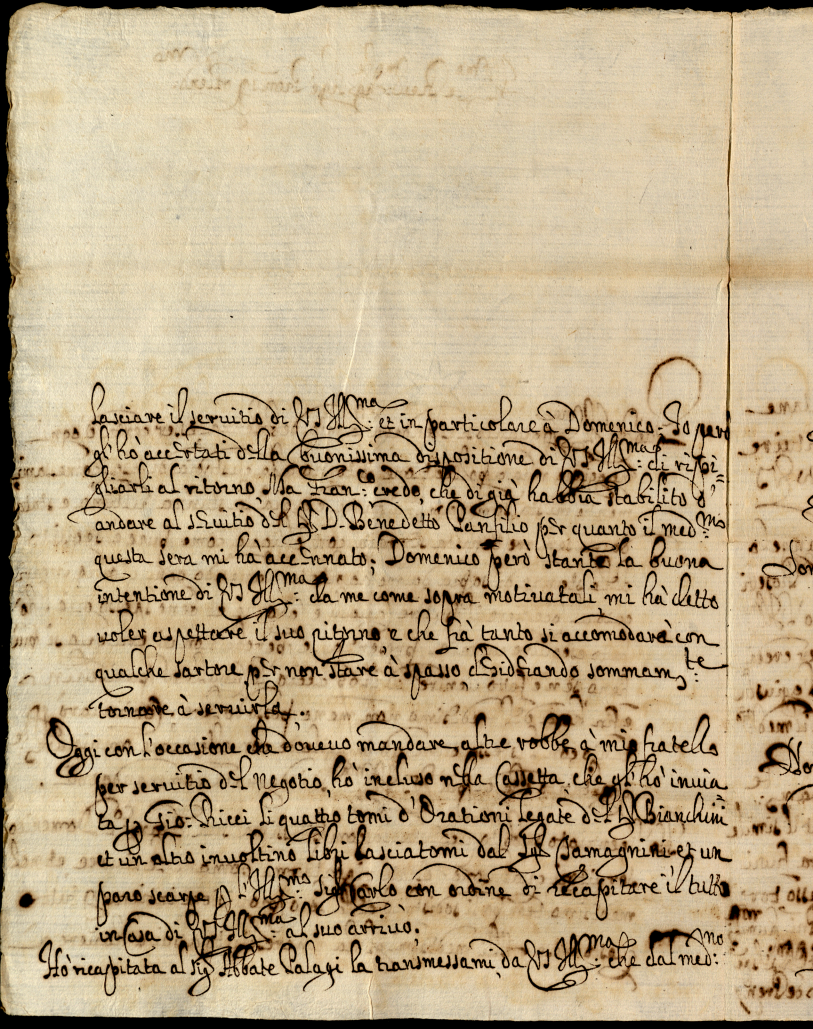 lasciare il servitio di VS Ill:ma et in particolare à Domenico. Io però
gl'hò accertati della buonissima dispositione di VS Ill:ma di ripi=
gliarli al ritorno, Ma Fran:co credo, che di già habbia stabilito d'
andare al servitio del S.r D. Benedetto Panfilio per quanto il med:mo
questa sera mi hà accennato; Domenico però stante la buona
intentione di VS Ill:ma da me come sopra motivatali mi hà detto
voler aspettare il suo ritorno e che frà tanto si accomodarà con
qualche sartore per non stare à spasso desiderando sommam:te
tornare à servirla.
Oggi con l'occasione che dovevo mandare altre robbe à mio fratello
per servitio del negotio, hò incluso nella Cassetta, che gl'hò invia
ta p Gio: Ricci li quattro tomi d'Orationi legate del S.r Bianchini
et un altro involtino libri lasciatomi dal Sig.r Camagnini et un
paro scarpe p l'Ill:mo Sig.r Carlo con ordine di recapitare il tutto
in Casa di VS Ill:ma al suo arrivo.
Hò ricapitata al Sig.r Abbate Palagi la transmessami da VS Ill:ma che dal med:mo